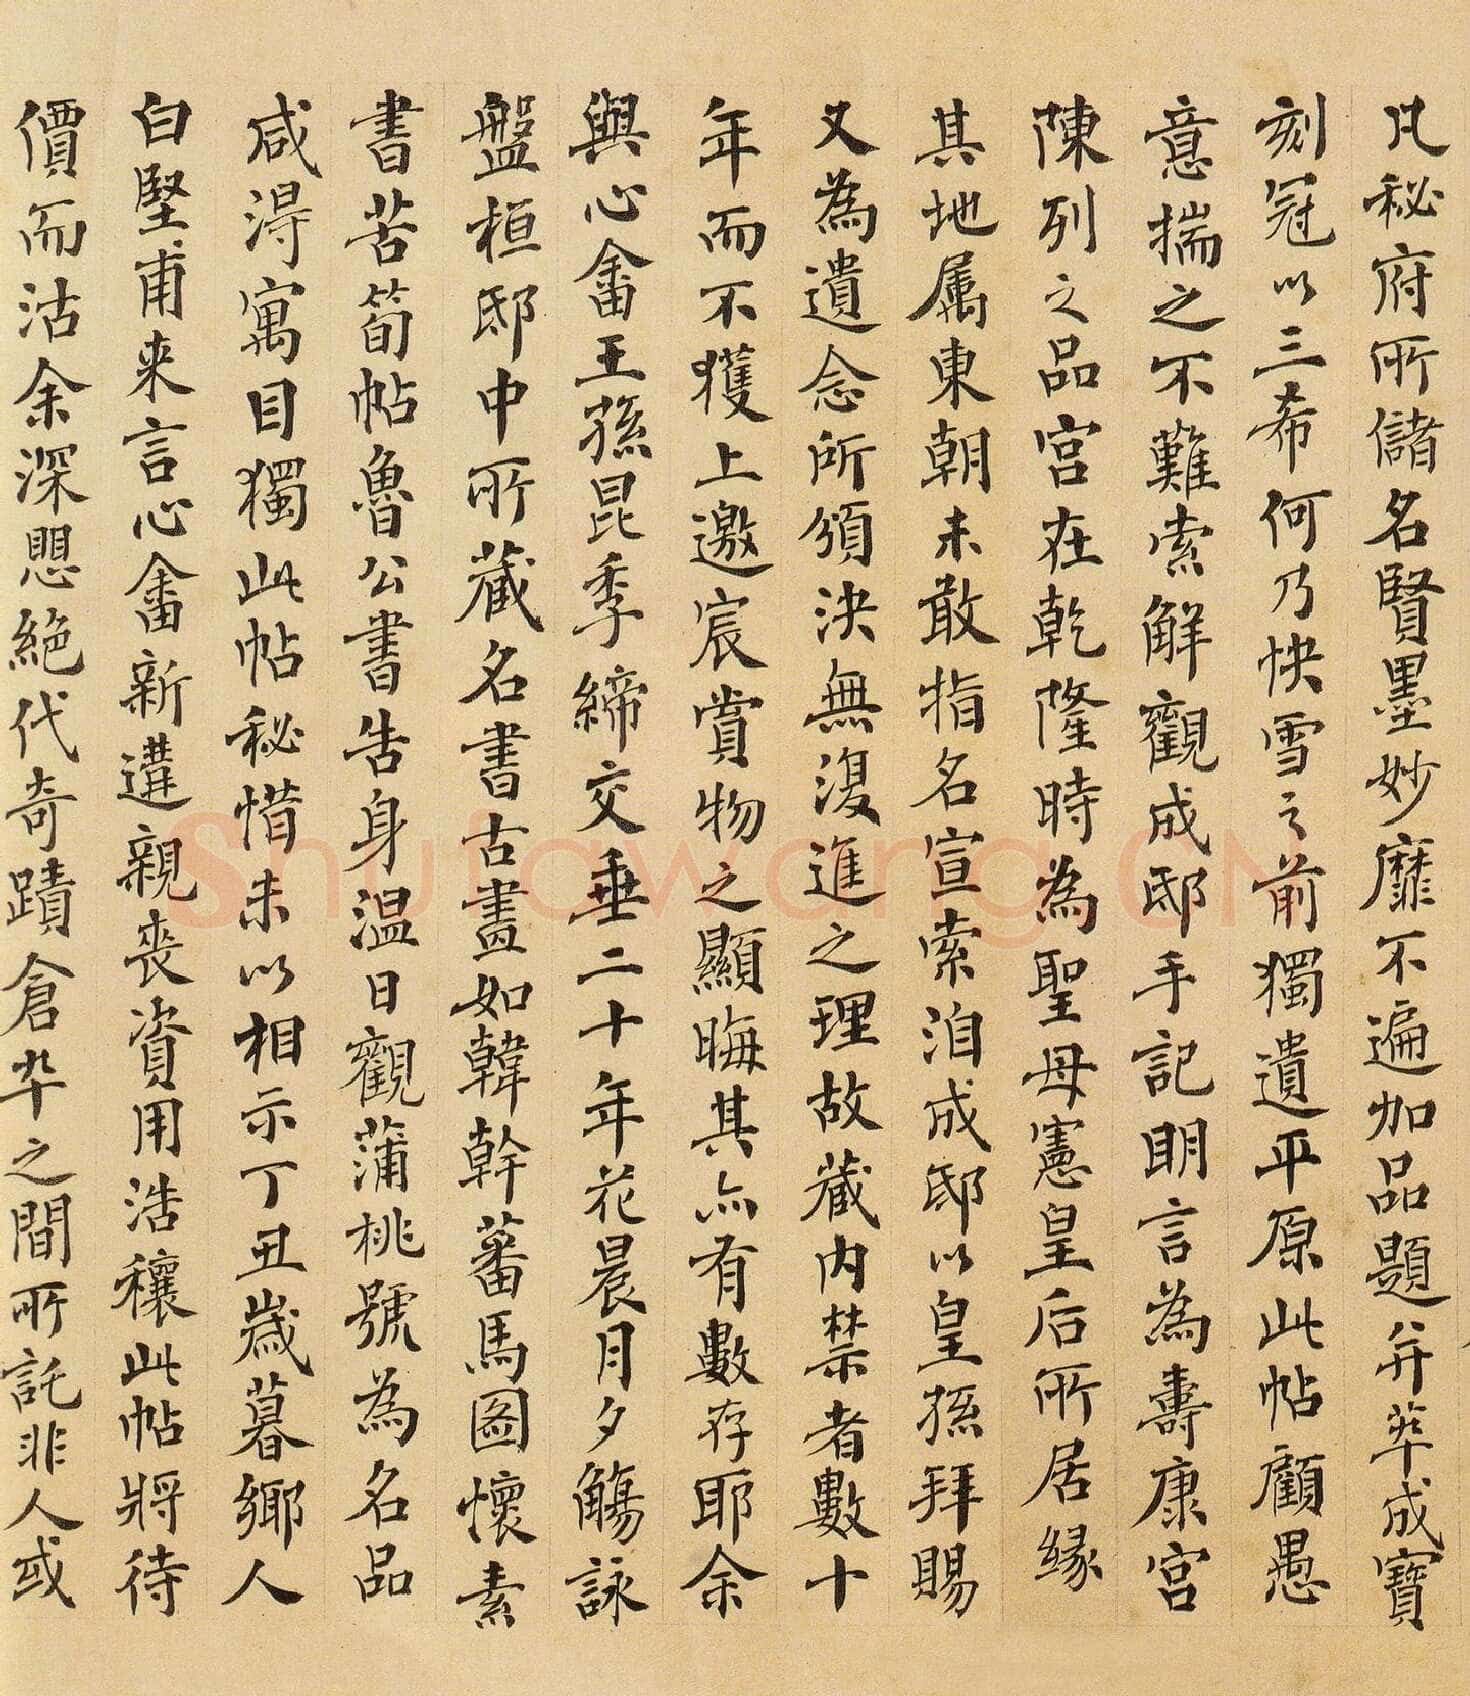 凡秘府所儲名賢墨妙靡不遍加品題并萃成寶
刻冠以三希何乃快雪之前獨遺平原此帖顧愚
意揣之不難索解觀成邸手記明言為壽康宮
陳列之品宮在乾隆時為聖母憲皇后所居緣
其地属東朝未敢指名宣索洎成邸以皇孫拜賜
又為遺念所頒決無復進之理故藏内禁者數十
年而不獲上邀宸賞物之顯晦其亦有數存耶余
與心畬王孫昆季締交垂二十年花晨月夕觴詠
盤桓邸中所藏名書古畫如韓幹蕃馬圖懷素
書苦筍帖魯公書告身溫日觀蒲桃號為名品
咸得寓目獨此帖秘惜未以相示丁丑歲暮鄉人
白堅甫来言心畬新遘親喪資用浩穰此帖將待
價而沽余深恐絕代奇蹟倉卒之間所託非人或
Shufawang.CN